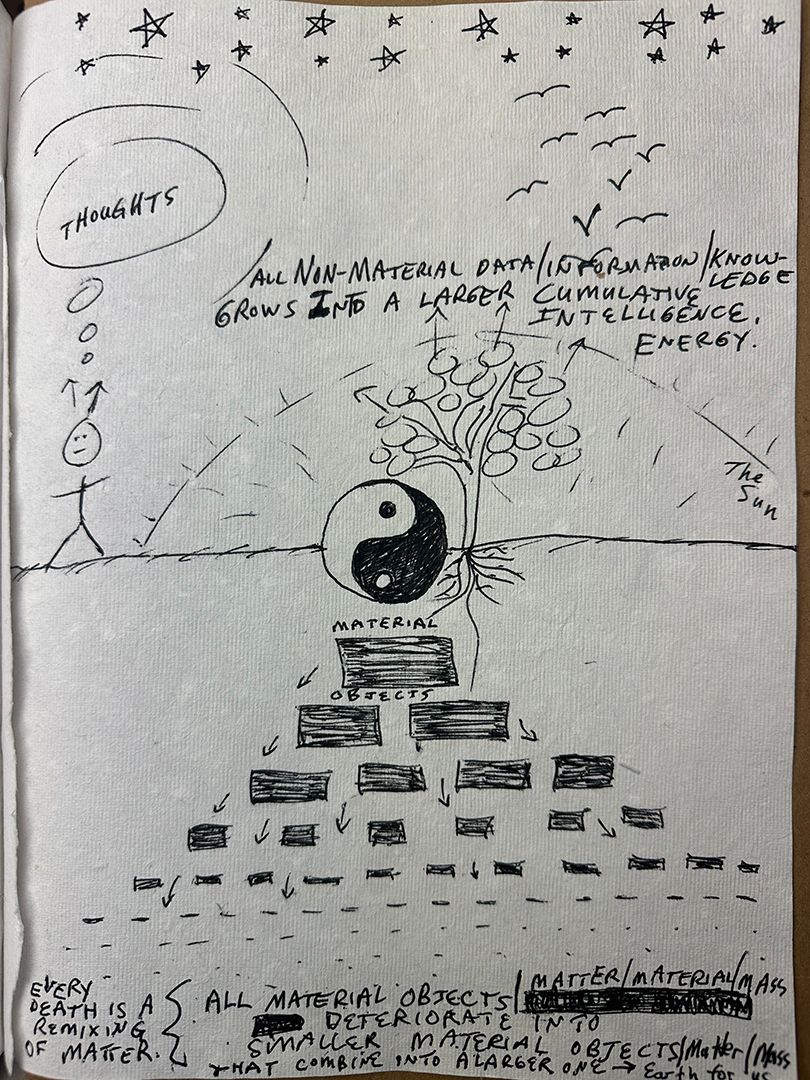 THOUGHTS
ALL NON-MATERIAL DATA/INFORMATION/KNOW-
LEDGE
GROWS INTO A LARGER CUMULATIVE
INTELLIGENCE.
ENERGY.
The
Sun
MATERIAL
OBJECTS
EVERY
DEATH IS A
REMIXING
OF MATTER.
ALL MATERIAL OBJECTS/MATTER/MATERIAL/MASS
DETERIORATE INTO
SMALLER MATERIAL OBJECTS/Matter/Mass
THAT COMBINE INTO A LARGER ONE → Earth for us